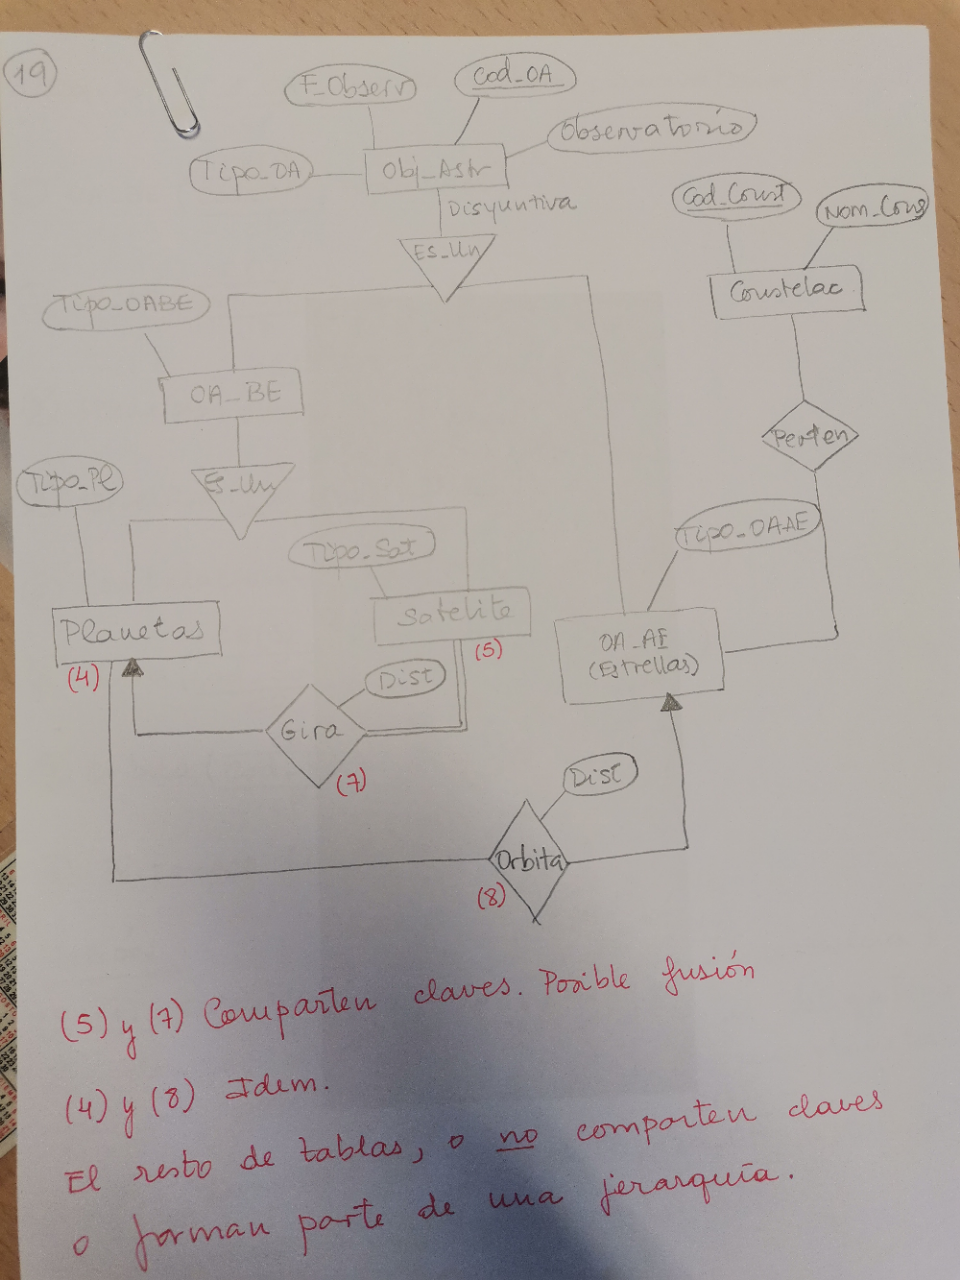 19
F_Observ
Cod_OA
Observatorio
Tipo_OA
Obj_Astr
Disyuntiva
Es_Un
Cod_Const
Nom_Cons
Constelac
Perten
Tipo_OABE
OA_BE
Es_Un
Tipo_Pl
Tipo_Sat
Tipo_OAAE
Planetas
(4)
Satelite
(5)
OA_AE
(Estrellas)
Dist
Gira
(7)
Dist
Orbita
(8)
(5) y (7) Comparten claves. Posible fusión
(4) y (8) Idem.
El resto de tablas, o no comparten claves
o forman parte de una jerarquía.